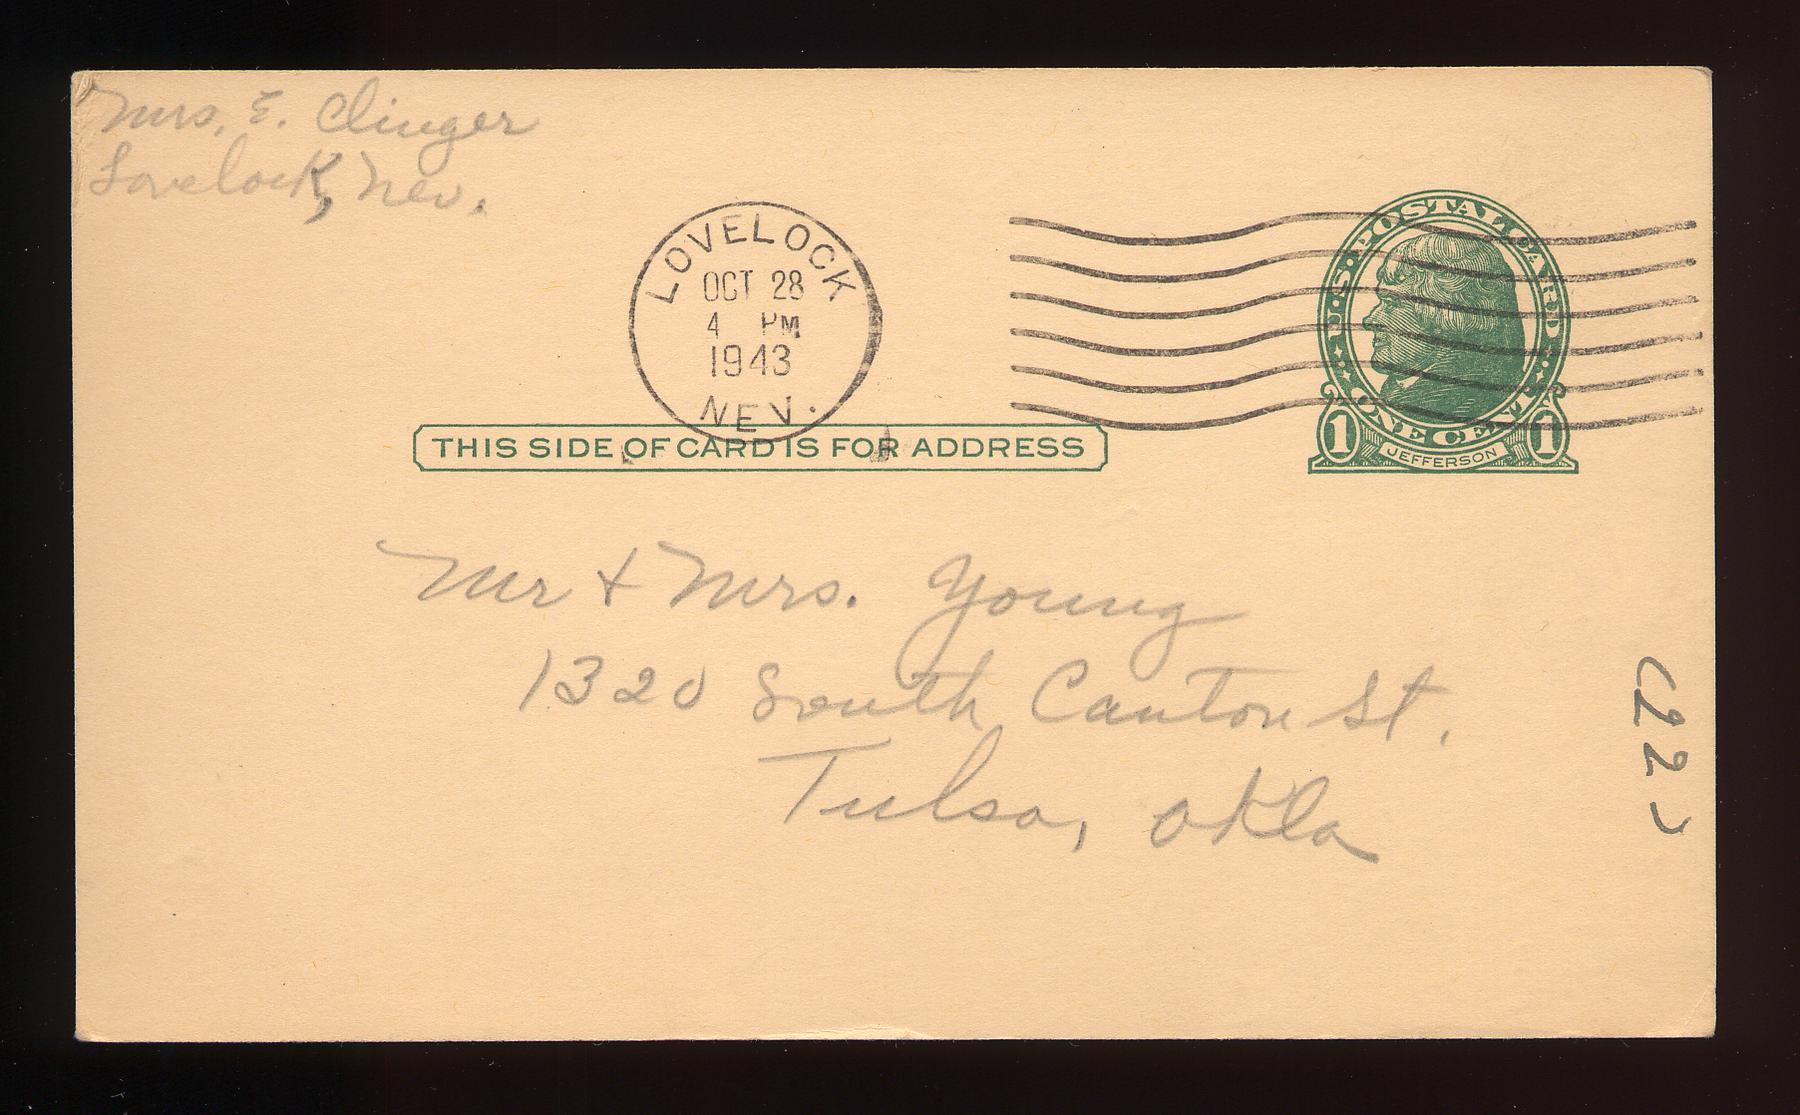 Mrs. E. Clinger
Lovelock, Nev.
LOVELOCK
OCT 28
4 PM
1943
NEV.
U.S. POSTAL CARD
ONE CENT
1 1
JEFFERSON
THIS SIDE OF CARD IS FOR ADDRESS
Mr & Mrs. Young
1320 South Canton St.
Tulsa, Okla
(22)